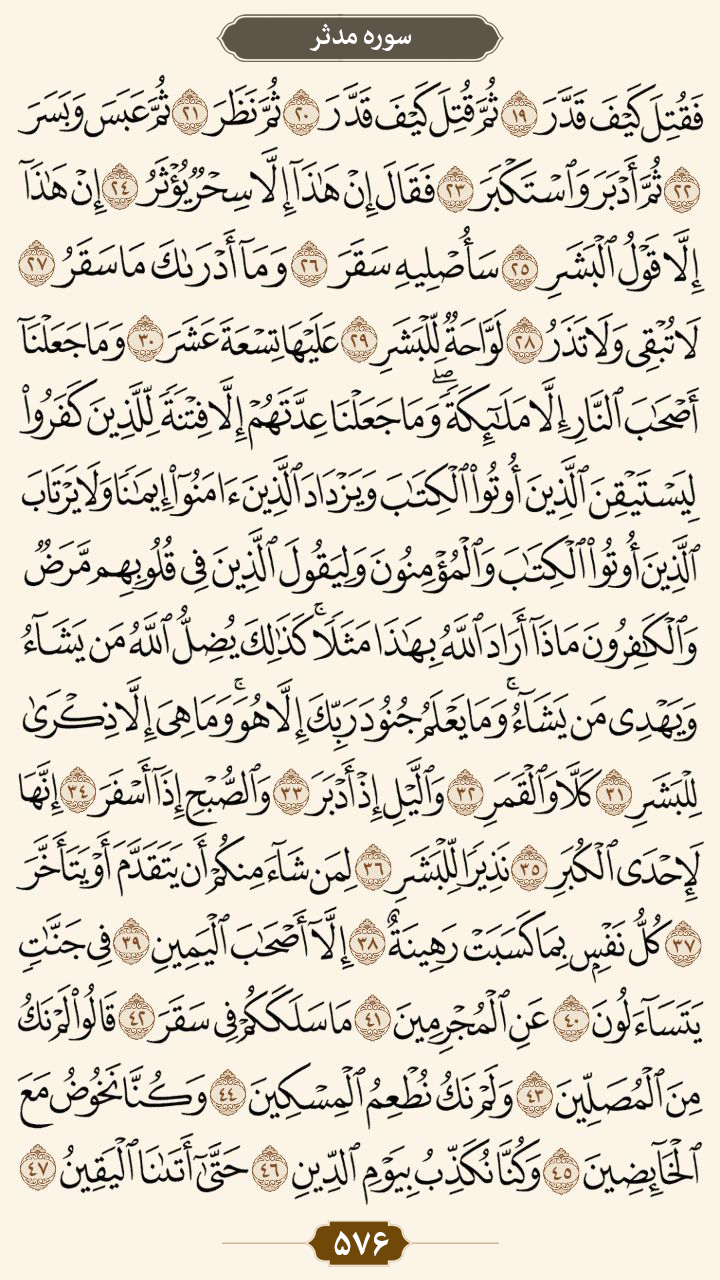 سوره مدثر
فَقُتِلَ كَيْفَ قَدَّرَ ١٩ ثُمَّ قُتِلَ كَيْفَ قَدَّرَ ٢٠ ثُمَّ نَظَرَ ٢١ ثُمَّ عَبَسَ وَبَسَرَ
٢٢ ثُمَّ أَدْبَرَ وَٱسْتَكْبَرَ ٢٣ فَقَالَ إِنْ هَٰذَآ إِلَّا سِحْرٌ يُؤْثَرُ ٢٤ إِنْ هَٰذَآ
إِلَّا قَوْلُ ٱلْبَشَرِ ٢٥ سَأُصْلِيهِ سَقَرَ ٢٦ وَمَآ أَدْرَىٰكَ مَا سَقَرُ ٢٧
لَا تُبْقِى وَلَا تَذَرُ ٢٨ لَوَّاحَةٌ لِّلْبَشَرِ ٢٩ عَلَيْهَا تِسْعَةَ عَشَرَ ٣٠ وَمَا جَعَلْنَآ
أَصْحَٰبَ ٱلنَّارِ إِلَّا مَلَٰٓئِكَةً ۖ وَمَا جَعَلْنَا عِدَّتَهُمْ إِلَّا فِتْنَةً لِّلَّذِينَ كَفَرُوا۟
لِيَسْتَيْقِنَ ٱلَّذِينَ أُوتُوا۟ ٱلْكِتَٰبَ وَيَزْدَادَ ٱلَّذِينَ ءَامَنُوٓا۟ إِيمَٰنًا وَلَا يَرْتَابَ
ٱلَّذِينَ أُوتُوا۟ ٱلْكِتَٰبَ وَٱلْمُؤْمِنُونَ وَلِيَقُولَ ٱلَّذِينَ فِى قُلُوبِهِم مَّرَضٌ
وَٱلْكَٰفِرُونَ مَاذَآ أَرَادَ ٱللَّهُ بِهَٰذَا مَثَلًا ۚ كَذَٰلِكَ يُضِلُّ ٱللَّهُ مَن يَشَآءُ
وَيَهْدِى مَن يَشَآءُ ۚ وَمَا يَعْلَمُ جُنُودَ رَبِّكَ إِلَّا هُوَ ۚ وَمَا هِىَ إِلَّا ذِكْرَىٰ
لِلْبَشَرِ ٣١ كَلَّا وَٱلْقَمَرِ ٣٢ وَٱلَّيْلِ إِذْ أَدْبَرَ ٣٣ وَٱلصُّبْحِ إِذَآ أَسْفَرَ ٣٤ إِنَّهَا
لَإِحْدَى ٱلْكُبَرِ ٣٥ نَذِيرًا لِّلْبَشَرِ ٣٦ لِمَن شَآءَ مِنكُمْ أَن يَتَقَدَّمَ أَوْ يَتَأَخَّرَ
٣٧ كُلُّ نَفْسٍۭ بِمَا كَسَبَتْ رَهِينَةٌ ٣٨ إِلَّآ أَصْحَٰبَ ٱلْيَمِينِ ٣٩ فِى جَنَّٰتٍ
يَتَسَآءَلُونَ ٤٠ عَنِ ٱلْمُجْرِمِينَ ٤١ مَا سَلَكَكُمْ فِى سَقَرَ ٤٢ قَالُوا۟ لَمْ نَكُ
مِنَ ٱلْمُصَلِّينَ ٤٣ وَلَمْ نَكُ نُطْعِمُ ٱلْمِسْكِينَ ٤٤ وَكُنَّا نَخُوضُ مَعَ
ٱلْخَآئِضِينَ ٤٥ وَكُنَّا نُكَذِّبُ بِيَوْمِ ٱلدِّينِ ٤٦ حَتَّىٰٓ أَتَىٰنَا ٱلْيَقِينُ ٤٧
۵۷۶